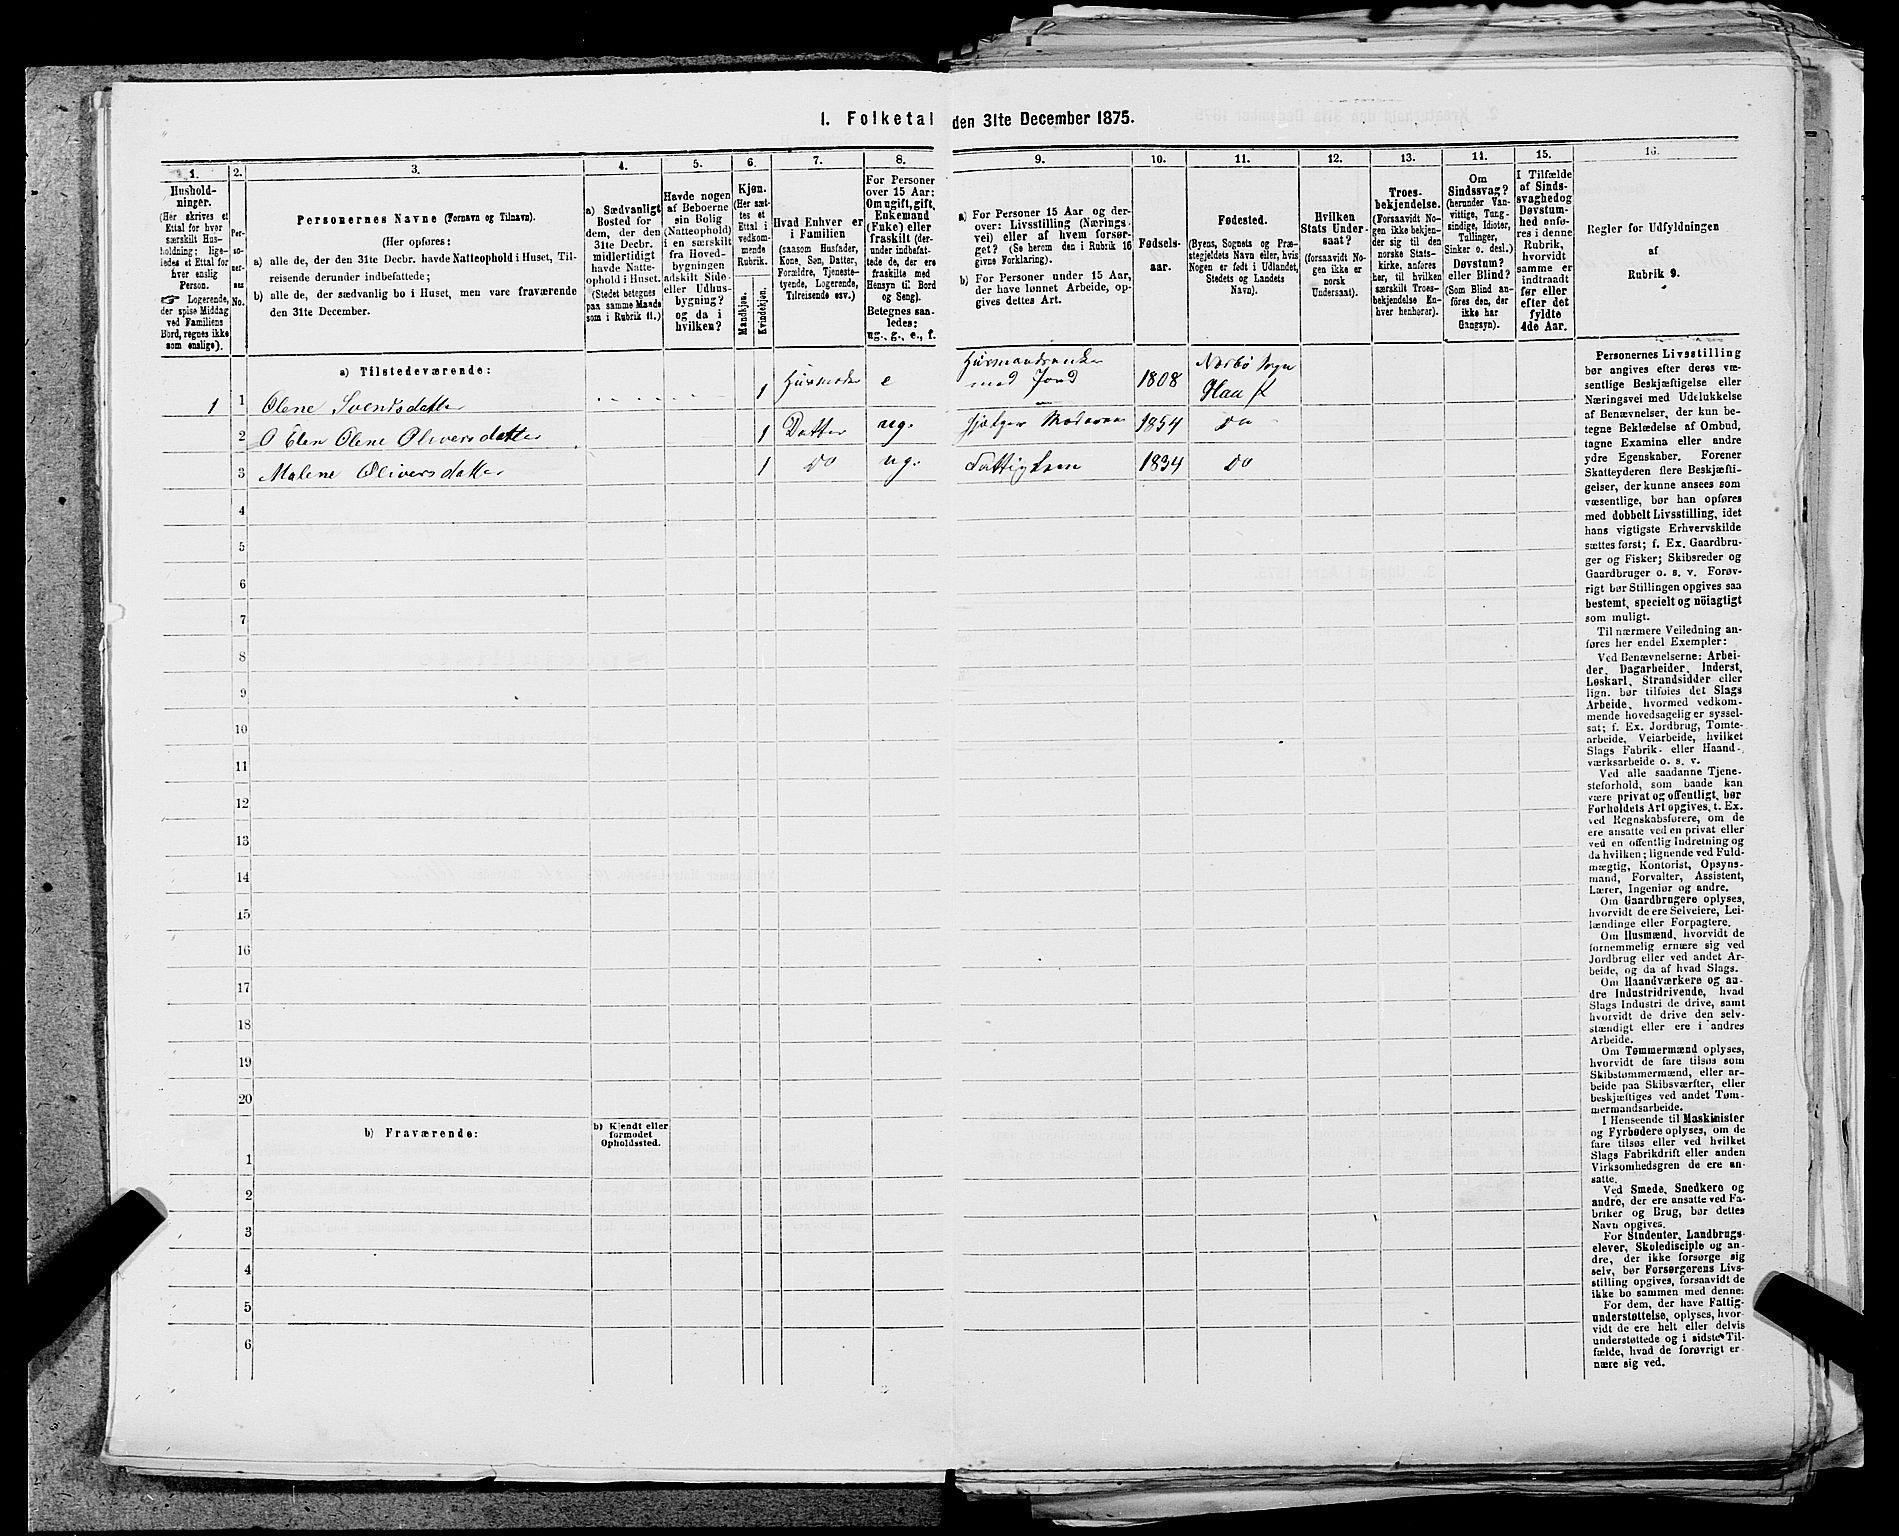 1. Folketal den 31te December 1875.
1.
Hushold-
ninger.
(Her skrives et
Ettal for hver
særskilt Hus-
holdning; lige-
ledes et Ettal for
hver enslig
Person.
☞ Logerende,
der spise Middag
ved Familiens
Bord, regnes ikke
som enslige).
2.
Per-
so-
ner-
nes
No.
3.
Personernes Navne (Fornavn og Tilnavn).
(Her opføres:
a) alle de, der den 31te Decbr. havde Natteophold i Huset, Til-
reisende derunder indbefattede;
b) alle de, der sædvanlig bo i Huset, men vare fraværende
den 31te December.
4.
a) Sædvanligt
Bosted for
dem, der den
31te Decbr.
midlertidigt
havde Natte-
ophold i Huset.
(Stedet betegnes
paa samme Maade
som i Rubrik 11.)
5.
Havde nogen
af Beboerne
sin Bolig
(Natteophold)
i en særskilt
fra Hoved-
bygningen
adskilt Side-
eller Udhus-
bygning?
og da i
hvilken?
6.
Kjøn.
(Her sæt-
tes et
Ettal i
vedkom-
mende
Rubrik.
Mandkjøn.
Kvindekjøn.
7.
Hvad Enhver er
i Familien
(saasom Husfader,
Kone, Søn, Datter,
Forældre, Tjeneste-
tyende, Logerende,
Tilreisende osv.)
8.
For Personer
over 15 Aar:
Om ugift, gift,
Enkemand
(Enke) eller
fraskilt (der-
under indbefat-
tede de, der ere
fraskilte med
Hensyn til Bord
og Seng).
Betegnes saa-
ledes:
ug., g., e., f.
9.
a) For Personer 15 Aar og der-
over: Livsstilling (Nærings-
vei) eller af hvem forsør-
get? (Se herom den i Rubrik 16
givne Forklaring).
b) For Personer under 15 Aar,
der have lønnet Arbeide, op-
gives dettes Art.
10.
Fødsels-
aar.
11.
Fødested.
(Byens, Sognets og Præ-
stegjeldets Navn eller, hvis
Nogen er født i Udlandet,
Stedets og Landets
Navn).
12.
Hvilken
Stats Under-
saat?
(forsaavidt No-
gen ikke er
norsk
Undersaat).
13.
Troes-
bekjendelse.
(Forsaavidt No-
gen ikke bekjen-
der sig til den
norske Stats-
kirke, anføres
her, til hvilken
særskilt Troes-
bekjendelse En-
hver henhører).
14.
Om
Sindssvag?
(herunder Van-
vittige, Tung-
sindige, Idioter,
Tullinger,
Sinker o. desl.)
Døvstum?
eller Blind?
(Som Blind an-
føres den, der
ikke har
Gangsyn).
15.
I Tilfælde
af Sinds-
svaghed og
Døvstum-
hed anfø-
res i denne
Rubrik,
hvorvidt
samme er
indtraadt
før eller
efter det
fyldte
4de Aar.
16.
Regler for Udfyldningen
af
Rubrik 9.
a) Tilstedeværende:
1 1 Olene Svendsdatter 1 Husmoder e Husmandsenke med Jord 1808 Narbø Sogn Haa
2 Elen Olene Oliversdatter 1 Datter ug. hjelper Moderen 1854 Do
3 Malene Oliversdatter 1 Do ug. Fattiglem 1834 Do
4
5
6
7
8
9
10
11
12
13
14
15
16
17
18
19
20
b) Fraværende:
b) Kjendt eller
formodet
Opholdssted.
1
2
3
4
5
6
Personernes Livsstilling
bør angives efter deres væ-
sentlige Beskjæftigelse eller
Næringsvei med Udelukkelse
af Benævnelser, der kun be-
tegne Beklædelse af Ombud,
tagne Examina eller andre
ydre Egenskaber. Forener
Skatteyderen flere Beskjæfti-
gelser, der kunne ansees som
væsentlige, bør han opføres
med dobbelt Livsstilling, idet
hans vigtigste Erhvervskilde
sættes først; f. Ex. Gaardbru-
ger og Fisker; Skibsreder og
Gaardbruger o. s. v. Forøv-
rigt bør Stillingen opgives saa
bestemt, specielt og nöiagtigt
som muligt.
Til nærmere Veiledning an-
føres her endel Exempler:
Ved Benævnelserne: Arbei-
der, Dagarbeider, Inderst,
Løskarl, Strandsidder eller
lign. bør tilføies det Slags
Arbeide, hvormed vedkom-
mende hovedsagelig er syssel-
sat; f. Ex. Jordbrug, Tomte-
arbeide, Veiarbeide, hvilket
Slags Fabrik- eller Haand-
værksarbeide o. s. v.
Ved alle saadanne Tjene-
steforhold, som baade kan
være privat og offentligt, bør
Forholdets Art opgives, t. Ex.
ved Regnskabsførere, om de
ere ansatte ved en privat eller
ved en offentlig Indretning og
da hvilken; lignende ved Fuld-
mægtig, Kontorist, Opsyns-
mand, Forvalter, Assistent,
Lærer, Ingeniør og andre.
Om Gaardbrugere oplyses,
hvorvidt de ere Selveiere, Lei-
lændinge eller Forpagtere.
Om Husmænd, hvorvidt de
fornemmelig ernære sig ved
Jordbrug eller ved andet Ar-
beide, og da af hvad Slags.
Om Haandværkere og an-
dre Industridrivende, hvad
Slags Industri de drive, samt
hvorvidt de drive den selv-
stændigt eller ere i andres
Arbeide.
Om Tømmermænd oplyses,
hvorvidt de fare tilsøs som
Skibstømmermænd, eller ar-
beide paa Skibsværfter, eller
beskjæftiges ved andet Tøm-
mermandsarbeide.
I Henseende til Maskinister
og Fyrbødere oplyses, om de
fare tilsøs eller ved hvilket
Slags Fabrikdrift eller anden
Virksomhedsgren de ere an-
satte.
Ved Smede, Snedkere og
andre, der ere ansatte ved Fa-
briker og Brug, bør dettes
Navn opgives.
For Studenter, Landbrugs-
elever, Skoledisciple og an-
dre, der ikke forsørge sig
selv, bør Forsørgerens Livs-
stilling opgives, forsaavidt de
ikke bo sammen med denne.
For dem, der have Fattig-
understøttelse, oplyses, hvor-
vidt de ere helt eller delvis
understøttede og i sidste Til-
fælde, hvad de forøvrigt er-
nære sig ved.